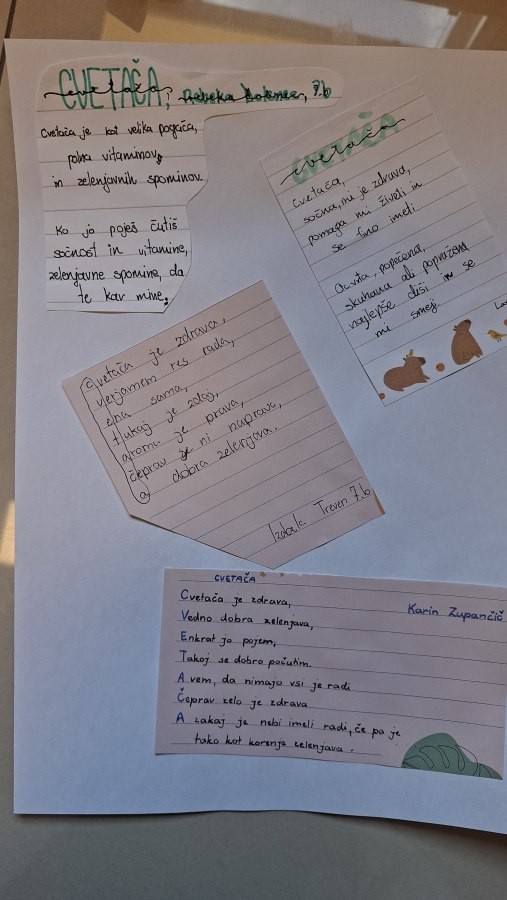 CVETAČA, Rebeka 7.b
cvetača
Cvetača je kot velika pogača,
polna vitaminov,
in zelenjavnih spominov.
Ko jo poješ čutiš
sočnost in vitamine,
zelenjavne spomine, da
te kar mine.
CVETAČA
cvetača
Cvetača,
sočna, mi je zdrava,
pomaga mi živeti in
se fino imeti.
Ocvrta, popečena,
skuhana ali popražena
najlepše diši in se
mi smeji.
Cvetača je zdrava,
verjamem res rada,
ena sama,
tukaj je zdaj,
aroma je prava,
čeprav je ni naprava,
a dobra zelenjava.
Izabela Treven 7.b
CVETAČA
Karin Zupančič
Cvetača je zdrava,
Vedno dobra zelenjava,
Enkrat jo pojem,
Takoj se dobro počutim.
A vem, da nimajo vsi je radi
Čeprav zelo je zdrava
A zakaj je nebi imeli radi, če pa je
tako kot korenje zelenjava.